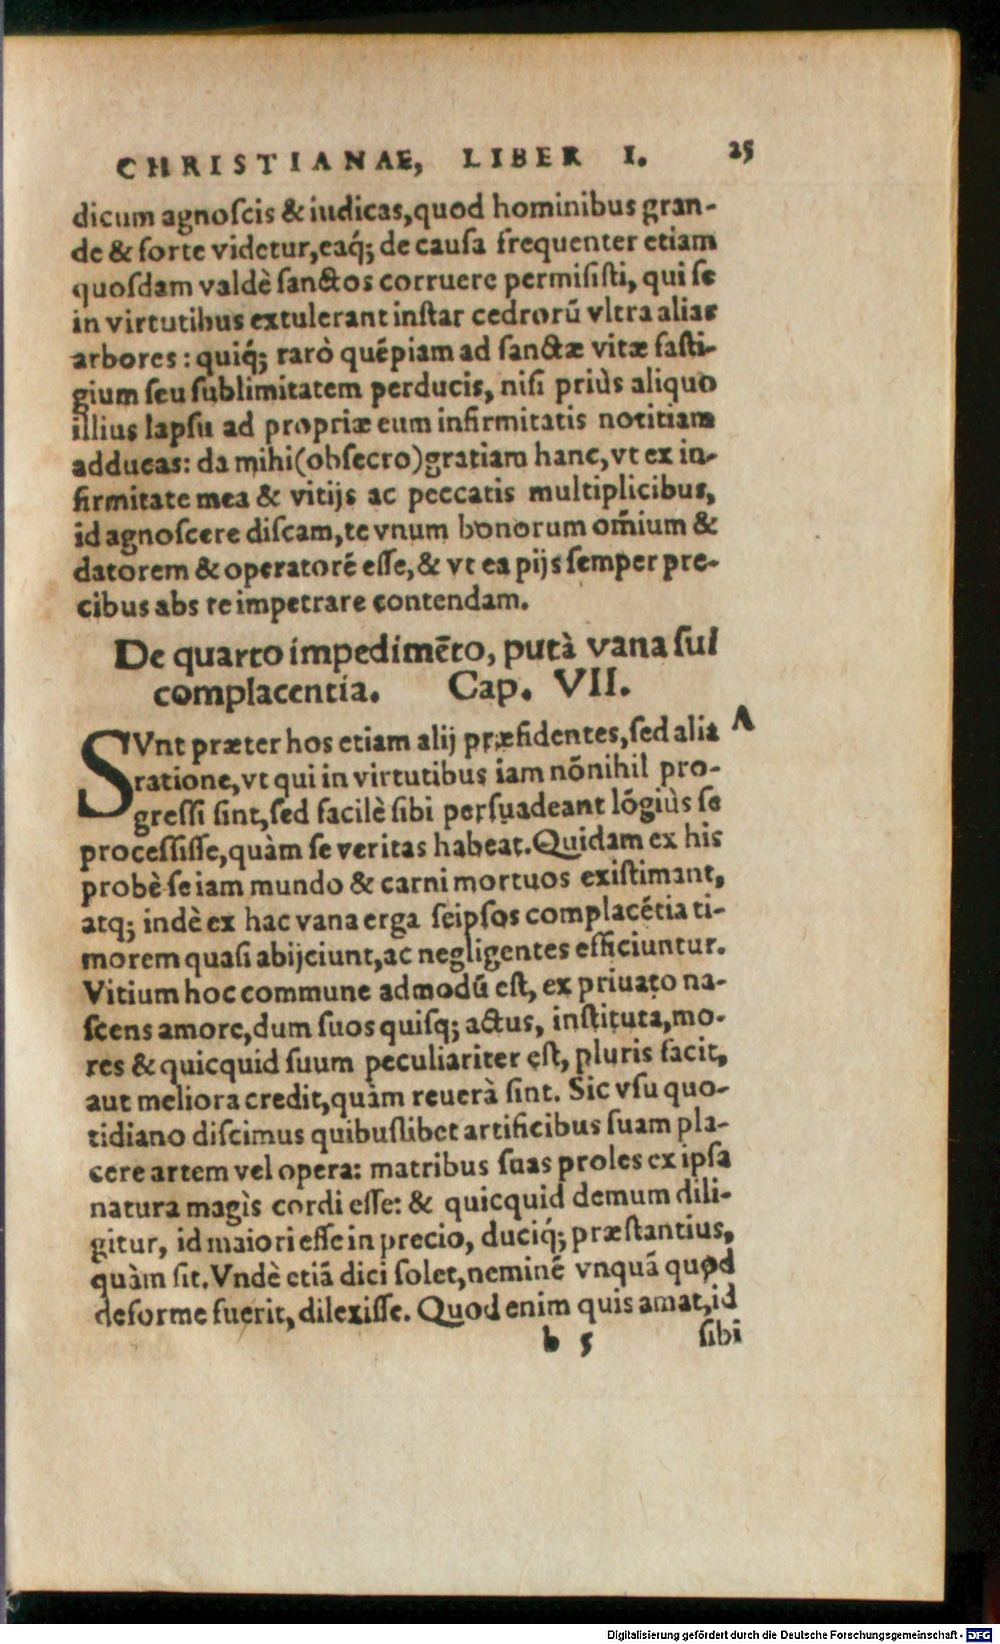 CHRISTIANAE, LIBER I. 25
dicum agnoſcis & iudicas, quod hominibus gran-
de & forte videtur, eaq́; de cauſa frequenter etiam
quoſdam valdè ſanctos corruere permiſiſti, qui ſe
in virtutibus extulerant inſtar cedrorū vltra alias
arbores: quiq́; rarò quépiam ad ſanctæ vitæ faſti-
gium ſeu ſublimitatem perducis, niſi priùs aliquo
illius lapſu ad propriæ eum infirmitatis notitiam
adducas: da mihi (obſecro) gratiam hanc, vt ex in-
firmitate mea & vitijs ac peccatis multiplicibus,
id agnoſcere diſcam, te vnum bonorum om̄ium &
datorem & operatoré eſſe, & vt ea pijs ſemper pre-
cibus abs te impetrare contendam.
De quarto impedimēto, putà vana ſui
complacentia. Cap. VII.
SVnt præter hos etiam alij præfidentes, ſed alia A
ratione, vt qui in virtutibus iam nōnihil pro-
greſſi ſint, ſed facilè ſibi perſuadeant lōgiùs ſe
proceſſiſſe, quàm ſe veritas habeat. Quidam ex his
probè ſe iam mundo & carni mortuos exiſtimant,
atq; indè ex hac vana erga ſeipſos complacétia ti-
morem quaſi abijciunt, ac negligentes efficiuntur.
Vitium hoc commune admodū eſt, ex priuato na-
ſcens amore, dum ſuos quiſq; actus, inſtituta, mo-
res & quicquid ſuum peculiariter eſt, pluris facit,
aut meliora credit, quàm reuerà ſint. Sic vſu quo-
tidiano diſcimus quibuſlibet artificibus ſuam pla-
cere artem vel opera: matribus ſuas proles ex ipſa
natura magìs cordi eſſe: & quicquid demum dili-
gitur, id maiori eſſe in precio, duciq́; præſtantius,
quàm ſit. Vndè etiā dici ſolet, neminē vnquā quod
deforme fuerit, dilexiſſe. Quod enim quis amat, id
b 5 ſibi
Digitalisierung gefördert durch die Deutsche Forschungsgemeinschaft - DFG